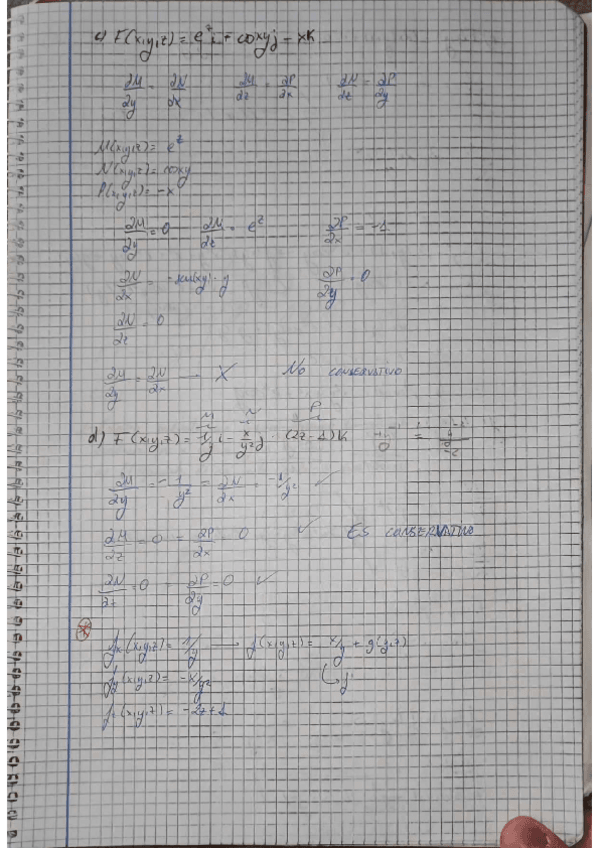 c) F(x,y,z) = e^z i + cosxyj - xK
∂M/∂y = ∂N/∂x    ∂M/∂z = ∂P/∂x    ∂N/∂z = ∂P/∂y
M(x,y,z) = e^z
N(x,y,z) = cosxy
P(x,y,z) = -x
∂M/∂y = 0    ∂M/∂z = e^z    ∂P/∂x = -1
∂N/∂x = -sen(xy) · y    ∂P/∂y = 0
∂N/∂z = 0
∂M/∂y = ∂N/∂x → X    No conservativo
M N P
d) F(x,y,z) = 1/y i - x/y² j - (2z-1)K
∂M/∂y = -1/y² = ∂N/∂x = -1/y² ✓
∂M/∂z = 0 = ∂P/∂x = 0 ✓    ES CONSERVATIVO
∂N/∂z = 0 = ∂P/∂y = 0 ✓
fx(x,y,z) = 1/y → f(x,y,z) = x/y + g(y,z)
fy(x,y,z) = -x/y²
fz(x,y,z) = -2z+1